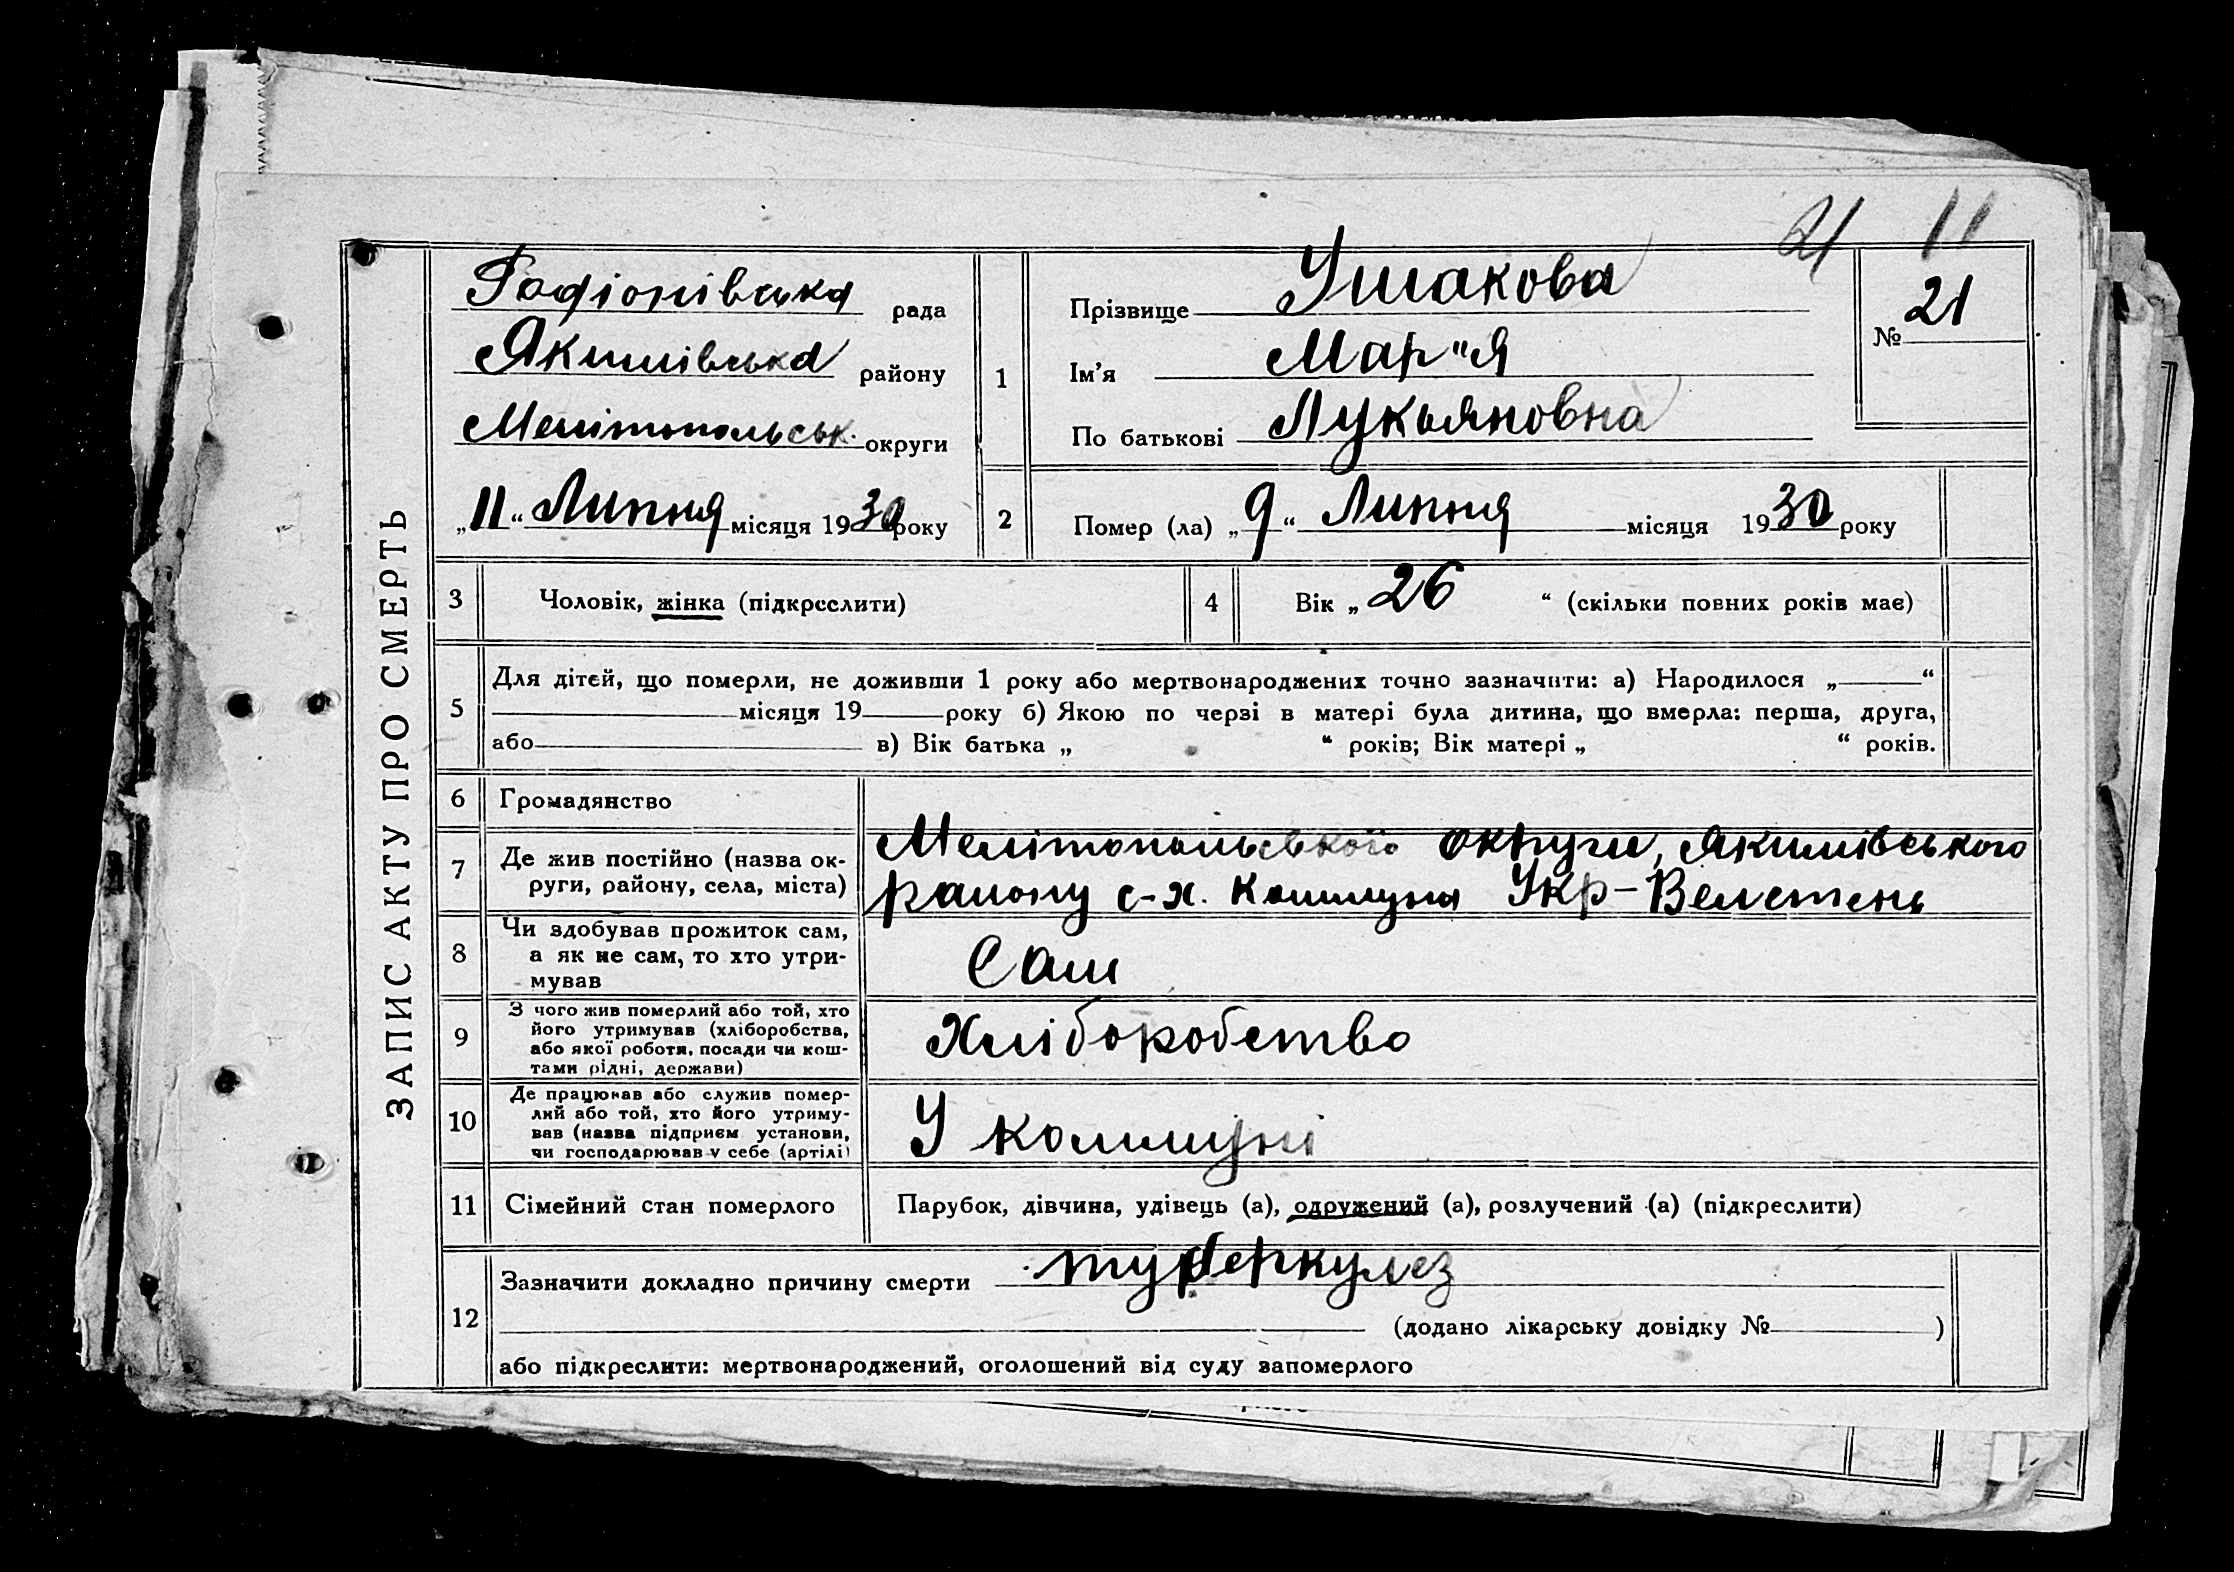 21 11
ЗАПИС АКТУ ПРО СМЕРТЬ
Радіонівська рада
Якимівська району
Мелітопольськ. округи
„11“ Липня місяця 1930 року
1
Прізвище Ушакова
Ім’я Мар"я
По батькові Лукьяновна
№ 21
2 Помер (ла) „9“ Липня місяця 1930 року
3 Чоловік, жінка (підкреслити)
4 Вік „26“ (скільки повних років має)
5
Для дітей, що померли, не доживши 1 року або мертвонароджених точно зазначити: а) Народилося „ “
місяця 19 року б) Якою по черзі в матері була дитина, що вмерла: перша, друга,
або в) Вік батька „ “ років; Вік матері „ “ років.
6 Громадянство
7 Де жив постійно (назва ок-
руги, району, села, міста)
Мелітопольської округи, Якимівського
району с-х. Коммуна Укр-Велетень
8 Чи здобував прожиток сам,
а як не сам, то хто утри-
мував
Сам
9 З чого жив померлий або той, хто
його утримував (хліборобства,
або якої роботи, посади чи кош-
тами рідні, держави)
Хліборобство
10 Де працював або служив помер-
лий або той, хто його утриму-
вав (назва підприєм установи,
чи господарював у себе (артілі)
У коммуні
11 Сімейний стан померлого
Парубок, дівчина, удівець (а), одружений (а), розлучений (а) (підкреслити)
12 Зазначити докладно причину смерти туберкулез
(додано лікарську довідку № )
або підкреслити: мертвонароджений, оголошений від суду запомерлого